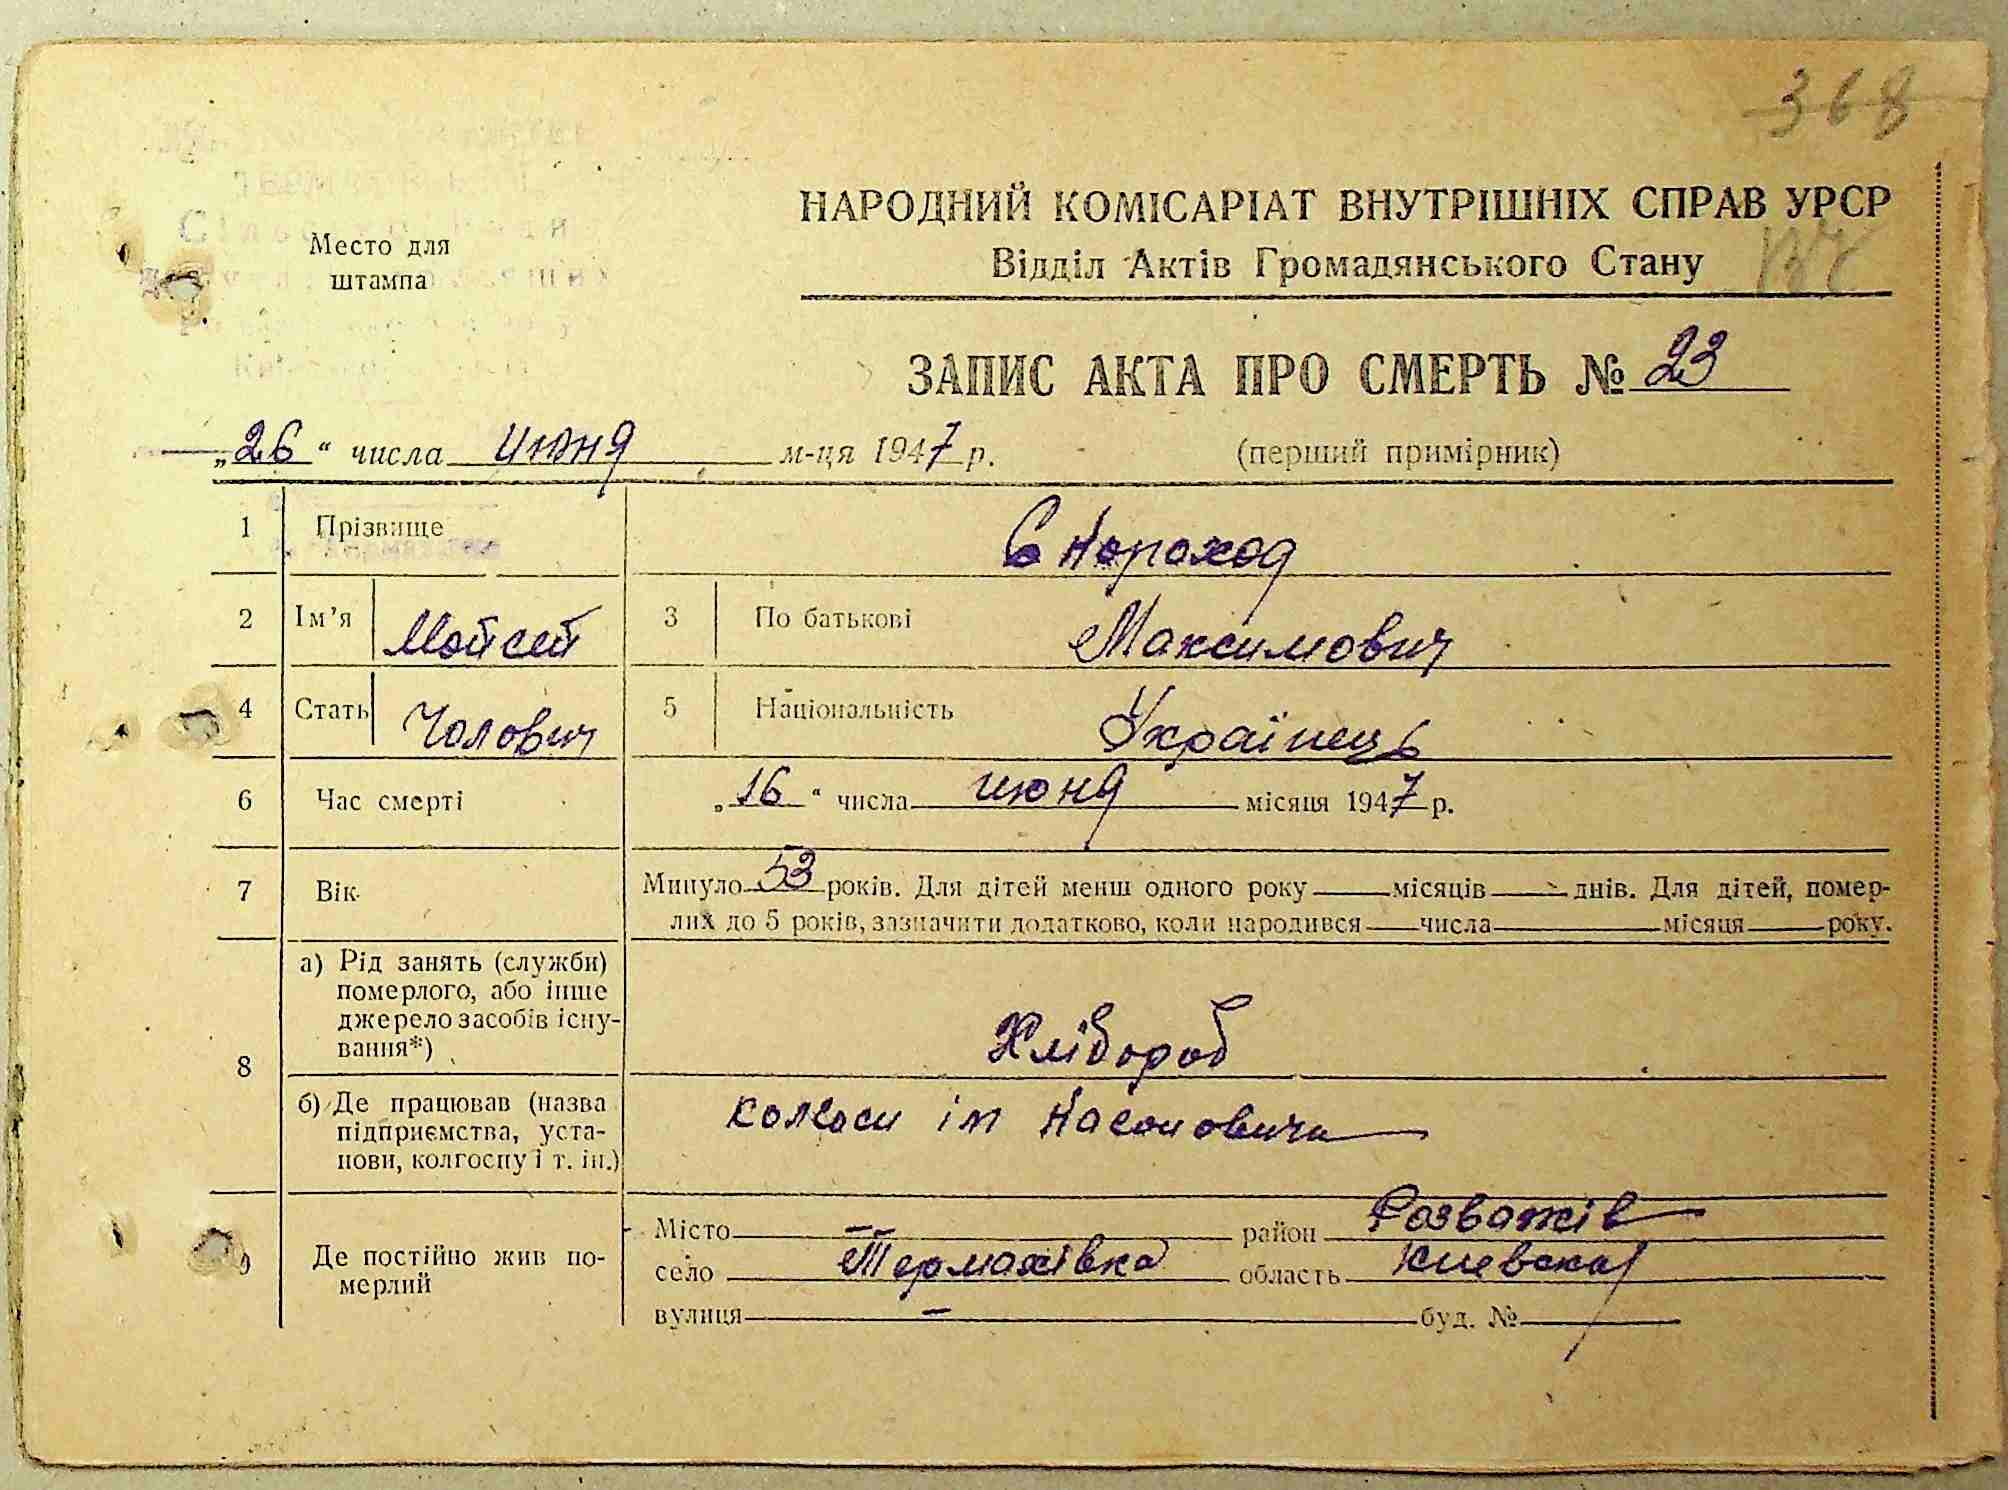 368
НАРОДНИЙ КОМІСАРІАТ ВНУТРІШНІХ СПРАВ УРСР
Відділ Актів Громадянського Стану
Место для
штампа
ЗАПИС АКТА ПРО СМЕРТЬ № 23
„26“ числа июня м-ця 1947 р. (перший примірник)
1 Прізвище Скороход
2 Ім'я Мойсей 3 По батькові Максимович
4 Стать Чолович 5 Національність Українець
6 Час смерті „16“ числа июня місяця 1947 р.
7 Вік Минуло 53 років. Для дітей менш одного року — місяців — днів. Для дітей, помер-
лих до 5 років, зазначити додатково, коли народився — числа — місяця — року.
8 а) Рід занять (служби)
померлого, або інше
джерело засобів існу-
вання*) Хлібороб
б) Де працював (назва
підприємства, уста-
нови, колгоспу і т. ін.) ім
9 Де постійно жив по-
мерлий
Місто — район Розважів
село Термахівка область Киевская
вулиця — буд. №